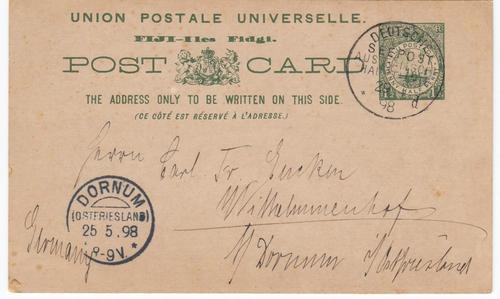 UNION POSTALE UNIVERSELLE.
FIJI-Iles Fidgi.
POST CARD
THE ADDRESS ONLY TO BE WRITTEN ON THIS SIDE.
(CE CÔTÉ EST RÉSERVÉ À L'ADRESSE.)
DEUTSCHE
SEEPOST
98
Herrn Carl Fr.
Wilhelminenhof
b/ Dornum i/Ostfriesland
Germany
DORNUM
(OSTFRIESLAND)
25 5.98
8-9V.*